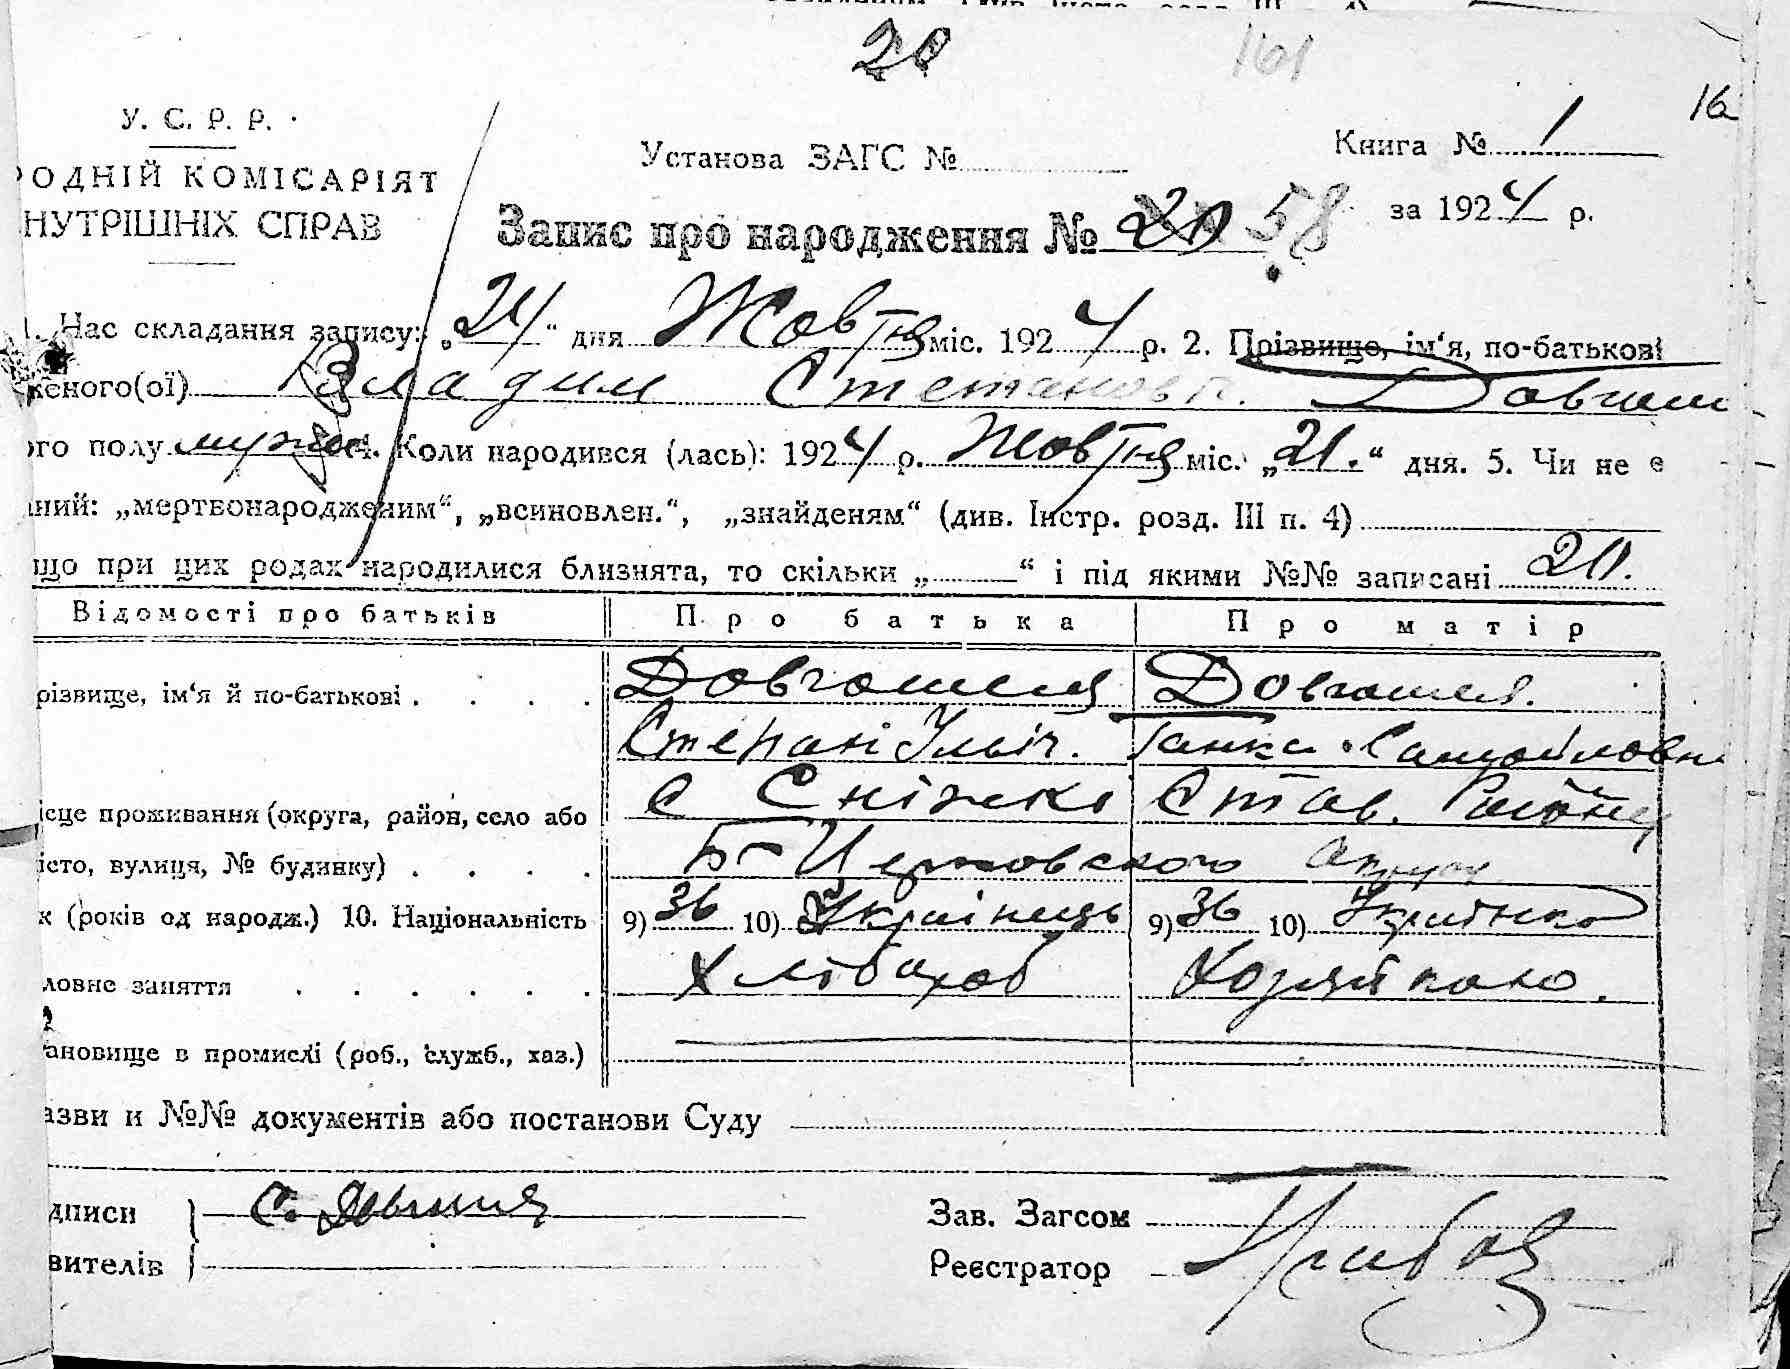 20 161
16
У. С. Р. Р.
РОДНІЙ КОМІСАРІЯТ
НУТРІШНІХ СПРАВ
Установа ЗАГС №
Книга № 1
за 1924 р.
Запис про народження № 20 58
1. Час складання запису: „24“ дня Жовтня міс. 1924 р. 2. Прізвище, ім‘я, по-батькові
женого(ої) Владим Степанов. Довгош
ого полу мужс. 4. Коли народився (лась): 1924 р. Жовтня міс. „21.“ дня. 5. Чи не є
аний: „мертвонародженим“, „всиновлен.“, „знайденям“ (див. Інстр. розд. III п. 4)
що при цих родах народилися близнята, то скільки „ “ і під якими №№ записані 20.
Відомості про батьків Про батька Про матір
різвище, ім‘я й по-батькові Довгошея Довгошея.
Степан Ільіч. Ганка Самойловна
ісце проживання (округа, район, село або С Сніжкі Став. Району
істо, вулиця, № будинку) Б-Церковского округу
к (років од народж.) 10. Національність 9) 36 10) Українець 9) 36 10) Українка
ловне заняття Хлібороб Хозяйкою.
ановище в промислі (роб., служб., хаз.)
азви и №№ документів або постанови Суду
дписи
вителів
С.
Зав. Загсом
Реєстратор